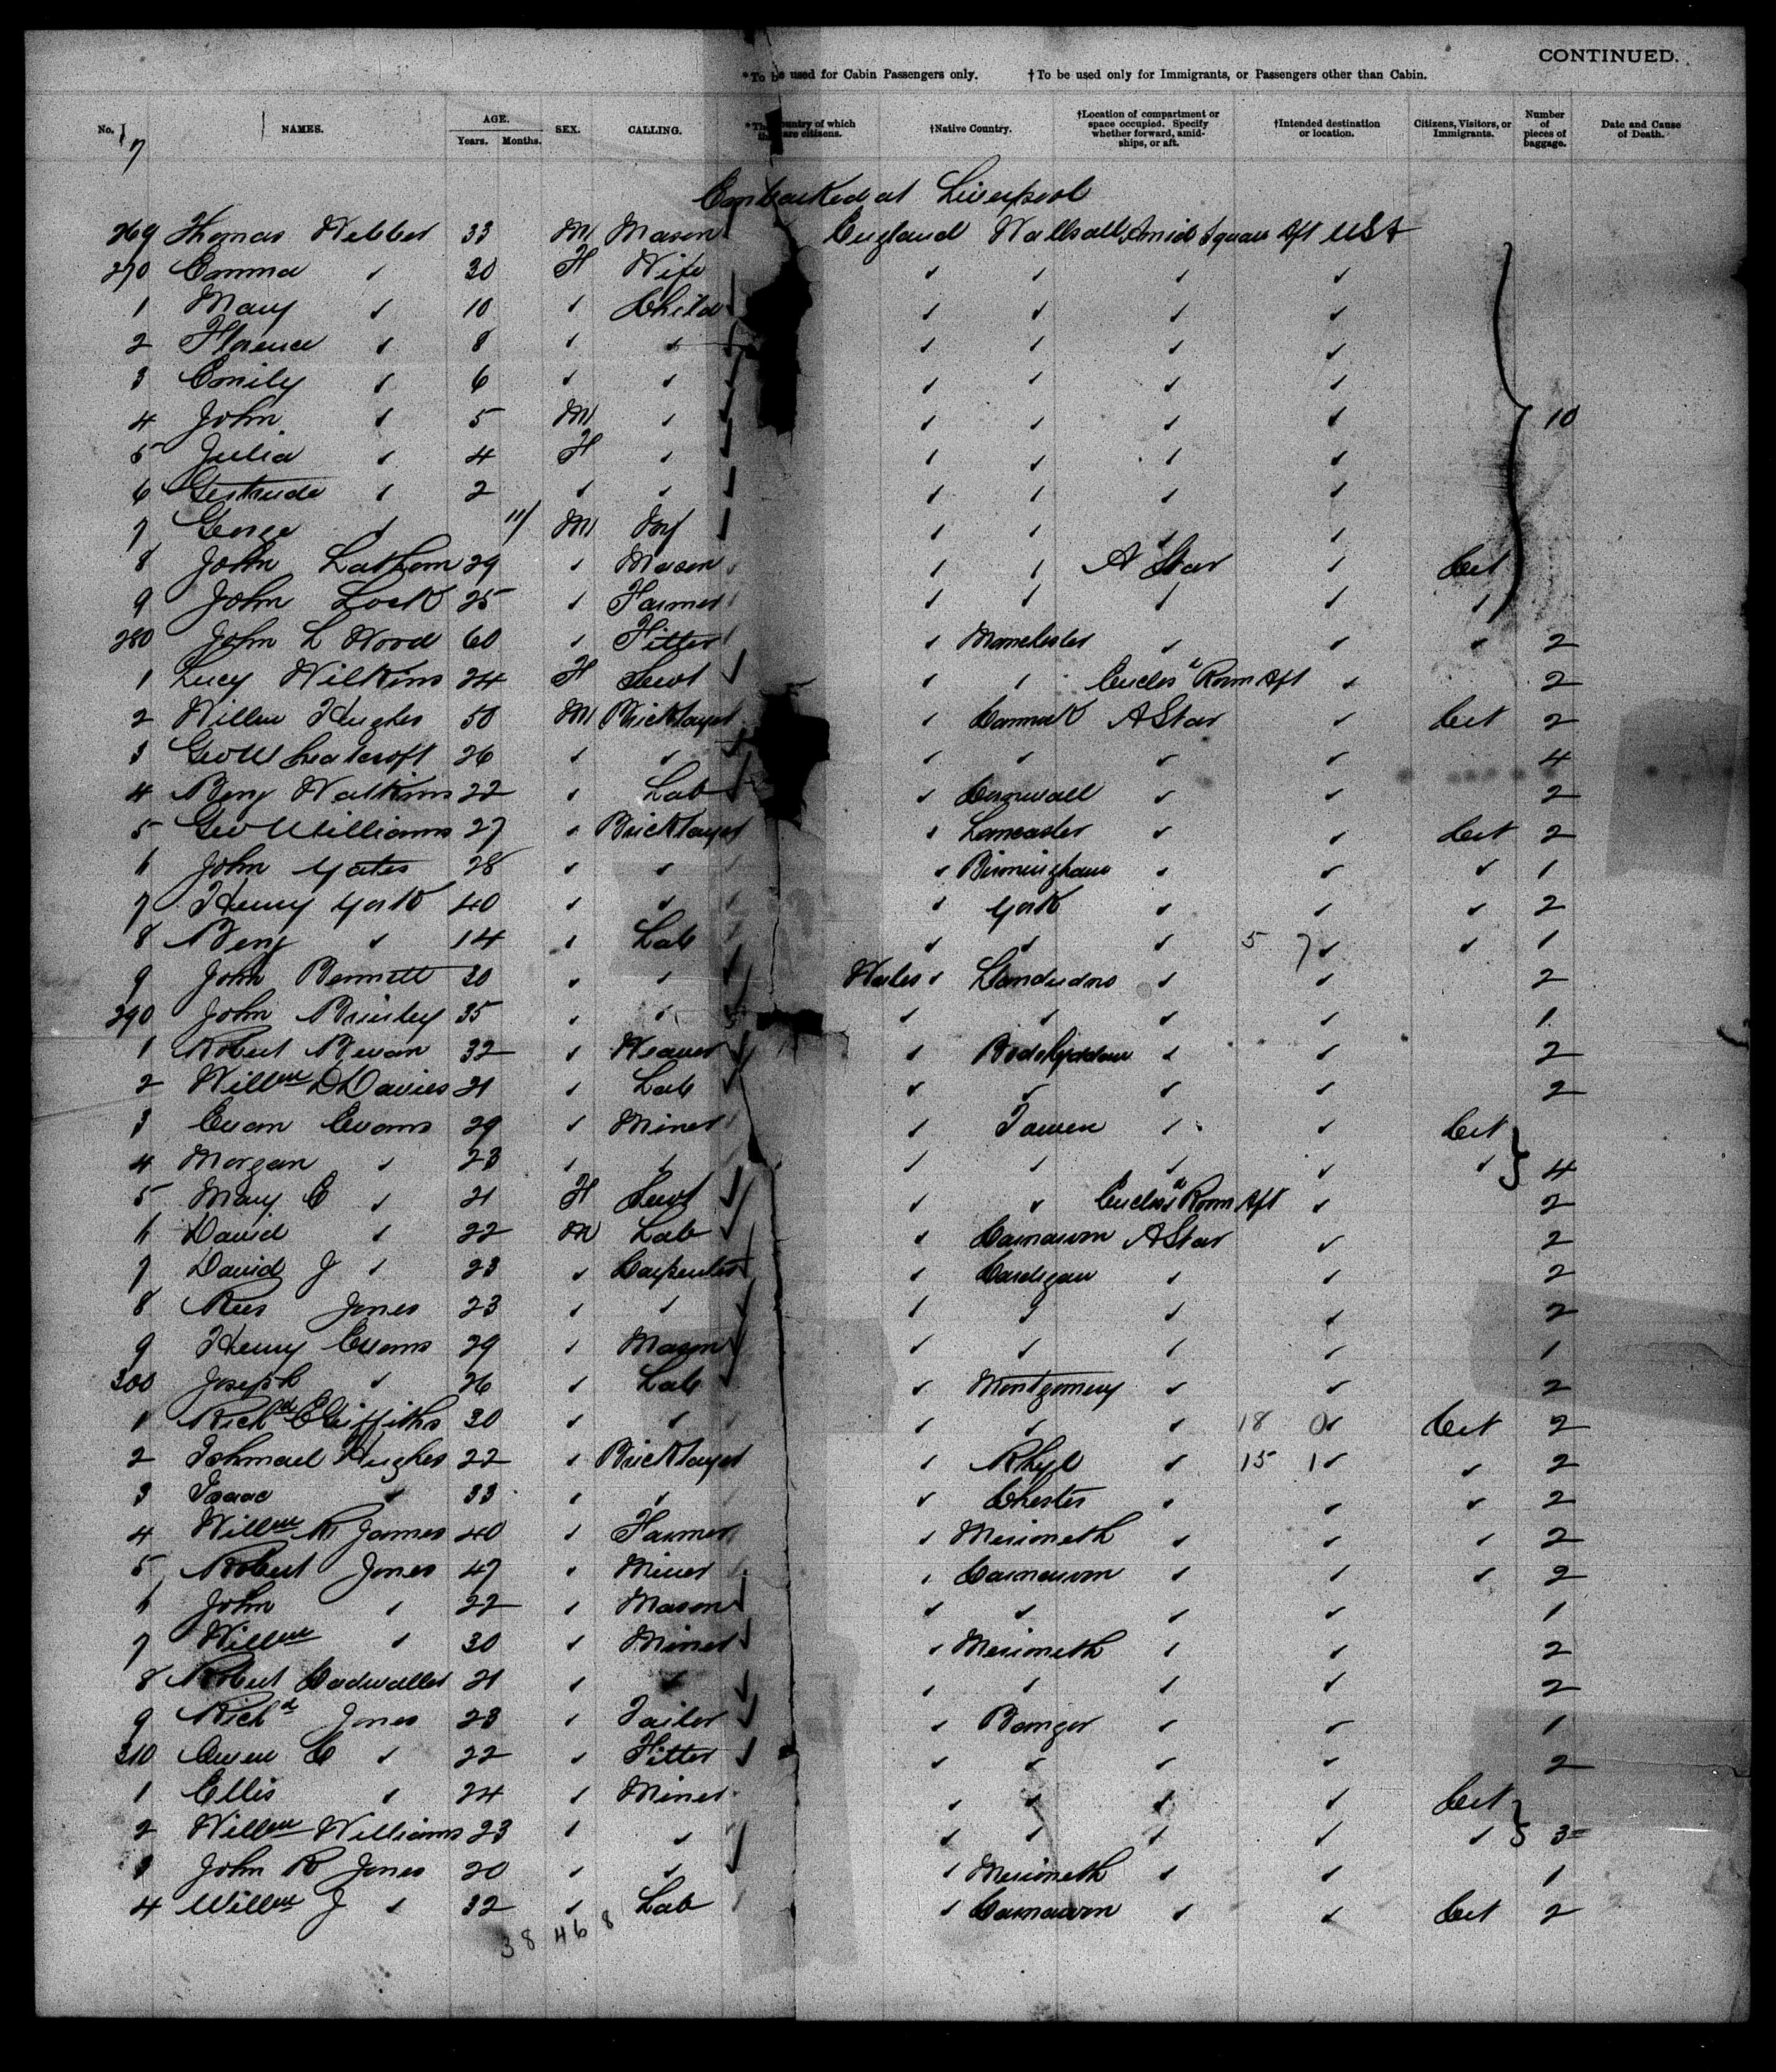 CONTINUED.
*To be used for Cabin Passengers only. †To be used only for Immigrants, or Passengers other than Cabin.
No. NAMES. AGE. Years. Months. SEX. CALLING. country of which are citizens. †Native Country. †Location of compartment or space occupied. Specify whether forward, amidships, or aft. †Intended destination or location. Citizens, Visitors, or Immigrants. Number of pieces of baggage. Date and Cause of Death.
7
Embarked at Liverpool
269 Thomas Webber 33 M Mason England Wallsall Amid Square Aft USA
270 Emma ✓ 30 F Wife ✓ ✓ ✓ ✓
1 Mary ✓ 10 ✓ Child ✓ ✓ ✓ ✓
2 Florence ✓ 8 ✓ ✓ ✓ ✓ ✓ ✓
3 Emily ✓ 6 ✓ ✓ ✓ ✓ ✓ ✓
4 John ✓ 5 M ✓ ✓ ✓ ✓ ✓ 10
5 Julia ✓ 4 F ✓ ✓ ✓ ✓ ✓
6 Gertrude ✓ 2 ✓ ✓ ✓ ✓ ✓ ✓
7 George ✓ 11 M Inf ✓ ✓ ✓ ✓
8 John Lathom 29 ✓ Mason ✓ ✓ A Star ✓ Cit
9 John Lock 25 ✓ Farmer ✓ ✓ ✓ ✓ ✓
280 John L Wood 60 ✓ Fitter ✓ Manchester ✓ ✓ ✓ 2
1 Lucy Wilkins 24 F Servt ✓ ✓ Enclos Room Aft ✓ 2
2 Willm Hughes 50 M Bricklayer ✓ Cannock A Star ✓ Cit 2
3 Geo Wheatcroft 26 ✓ ✓ ✓ ✓ ✓ ✓ 4
4 Benj Watkins 22 ✓ Lab ✓ Cornwall ✓ ✓ 2
5 Geo Williams 27 ✓ Bricklayer ✓ Lancaster ✓ ✓ Cit 2
6 John Yates 28 ✓ ✓ ✓ Birmingham ✓ ✓ ✓ 1
7 Henry York 40 ✓ ✓ ✓ York ✓ ✓ ✓ 2
8 Benj ✓ 14 ✓ Lab ✓ ✓ ✓ 5 7 ✓ ✓ 1
9 John Bennett 30 ✓ ✓ Wales ✓ Llandudno ✓ ✓ 2
290 John Brinley 35 ✓ ✓ ✓ ✓ ✓ ✓ 1
1 Robert Bevan 32 ✓ Weaver ✓ Bodelyddan ✓ ✓ 2
2 Willm D Davies 21 ✓ Lab ✓ ✓ ✓ ✓ 2
3 Evan Evans 29 ✓ Miner ✓ Tawen ✓ ✓ Cit
4 Morgan ✓ 23 ✓ ✓ ✓ ✓ ✓ ✓ ✓ 4
5 Mary E ✓ 21 F Servt ✓ ✓ Enclos Room Aft ✓ 2
6 David ✓ 22 M Lab ✓ Carnarvon A Star ✓ 2
7 David J ✓ 23 ✓ Carpenter ✓ Cardigan ✓ ✓ 2
8 Rees Jones 23 ✓ ✓ ✓ ✓ ✓ ✓ 2
9 Henry Evans 29 ✓ Mason ✓ ✓ ✓ ✓ 1
300 Joseph ✓ 26 ✓ Lab ✓ Montgomery ✓ ✓ 2
1 Richd E Griffiths 30 ✓ ✓ ✓ ✓ ✓ 18 0 ✓ Cit 2
2 Ishmael Hughes 22 ✓ Bricklayer ✓ Rhyl ✓ 15 1 ✓ ✓ 2
3 Isaac ✓ 33 ✓ ✓ ✓ Chester ✓ ✓ ✓ 2
4 Willm R James 40 ✓ Farmer ✓ Merioneth ✓ ✓ ✓ 2
5 Robert Jones 47 ✓ Miner ✓ Carnarvon ✓ ✓ ✓ 2
6 John ✓ 22 ✓ Mason ✓ ✓ ✓ ✓ 1
7 Willm ✓ 30 ✓ Miner ✓ Merioneth ✓ ✓ 2
8 Robert Cadwallder 21 ✓ ✓ ✓ ✓ ✓ ✓ 2
9 Richd Jones 23 ✓ Tailor ✓ Bangor ✓ ✓ 1
310 Owen E ✓ 22 ✓ Fitter ✓ ✓ ✓ ✓ 2
1 Ellis ✓ 24 ✓ Miner ✓ ✓ ✓ ✓ Cit
2 Willm Williams 23 ✓ ✓ ✓ ✓ ✓ ✓ ✓ 3
3 John R Jones 20 ✓ ✓ ✓ Merioneth ✓ ✓ 1
4 Willm J ✓ 32 ✓ Lab ✓ Carnarvon ✓ ✓ Cit 2
38 46 8